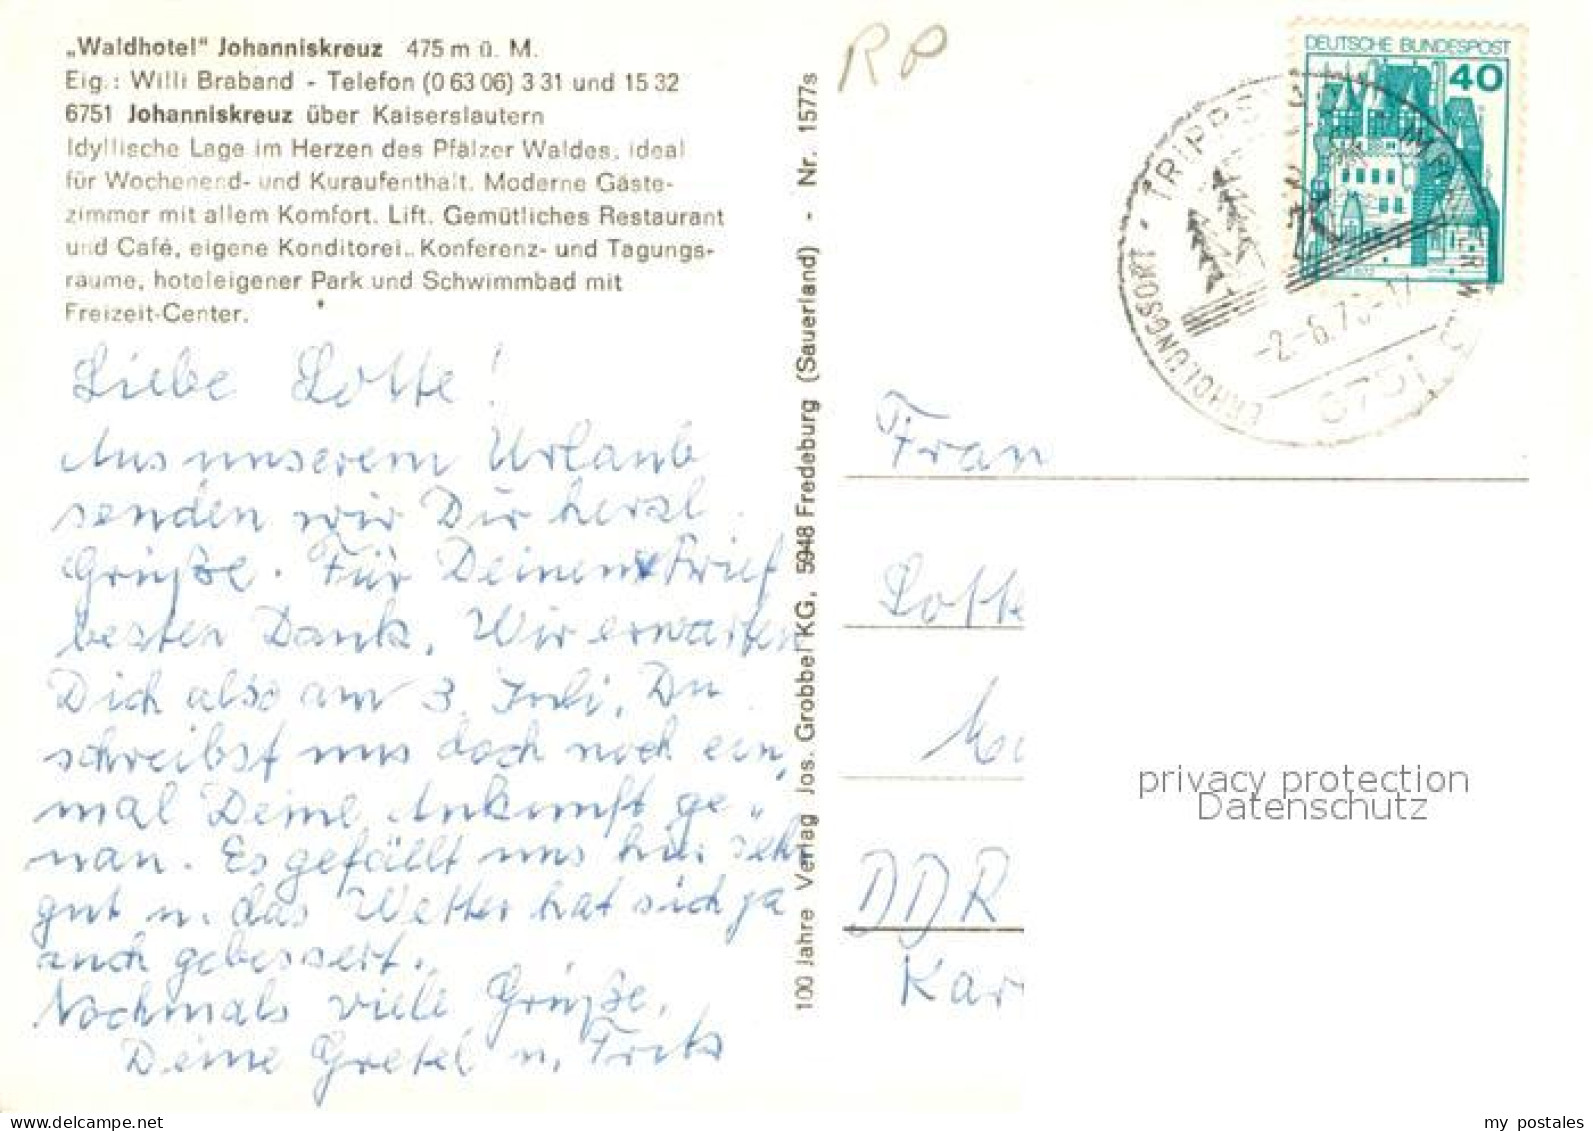 „Waldhotel" Johanniskreuz 475 m ü. M.
Eig.: Willi Braband - Telefon (0 63 06) 3 31 und 15 32
6751 Johanniskreuz über Kaiserslautern
Idyllische Lage im Herzen des Pfälzer Waldes, ideal
für Wochenend- und Kuraufenthalt. Moderne Gäste-
zimmer mit allem Komfort. Lift. Gemütliches Restaurant
und Café, eigene Konditorei.. Konferenz- und Tagungs-
räume, hoteleigener Park und Schwimmbad mit
Freizeit-Center.
Liebe Lotte!
Aus unserem Urlaub
senden wir Dir herzl.
Grüße. Für Deinen Brief
besten Dank. Wir erwarten
Dich also am 3. Juli. Du
schreibst uns doch noch ein,
mal Deine Ankunft ge„
nau. Es gefällt uns hier sehr
gut u. das Wetter hat sich ja
auch gebessert.
Nochmals viele Grüße,
Deine Gretel u. Fritz
100 Jahre Verlag Jos. Grobbel KG, 5948 Fredeburg (Sauerland) - Nr. 1577s
RP
DEUTSCHE BUNDESPOST
40
ERHOLUNGSORT · TRIPPS
-2.-6.7
6751
Frau
Lotte
DDR
Kar
privacy protection
Datenschutz
my postales